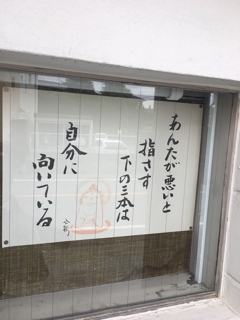 あんたが悪いと
指さす
下の三本は
自分に
向いている